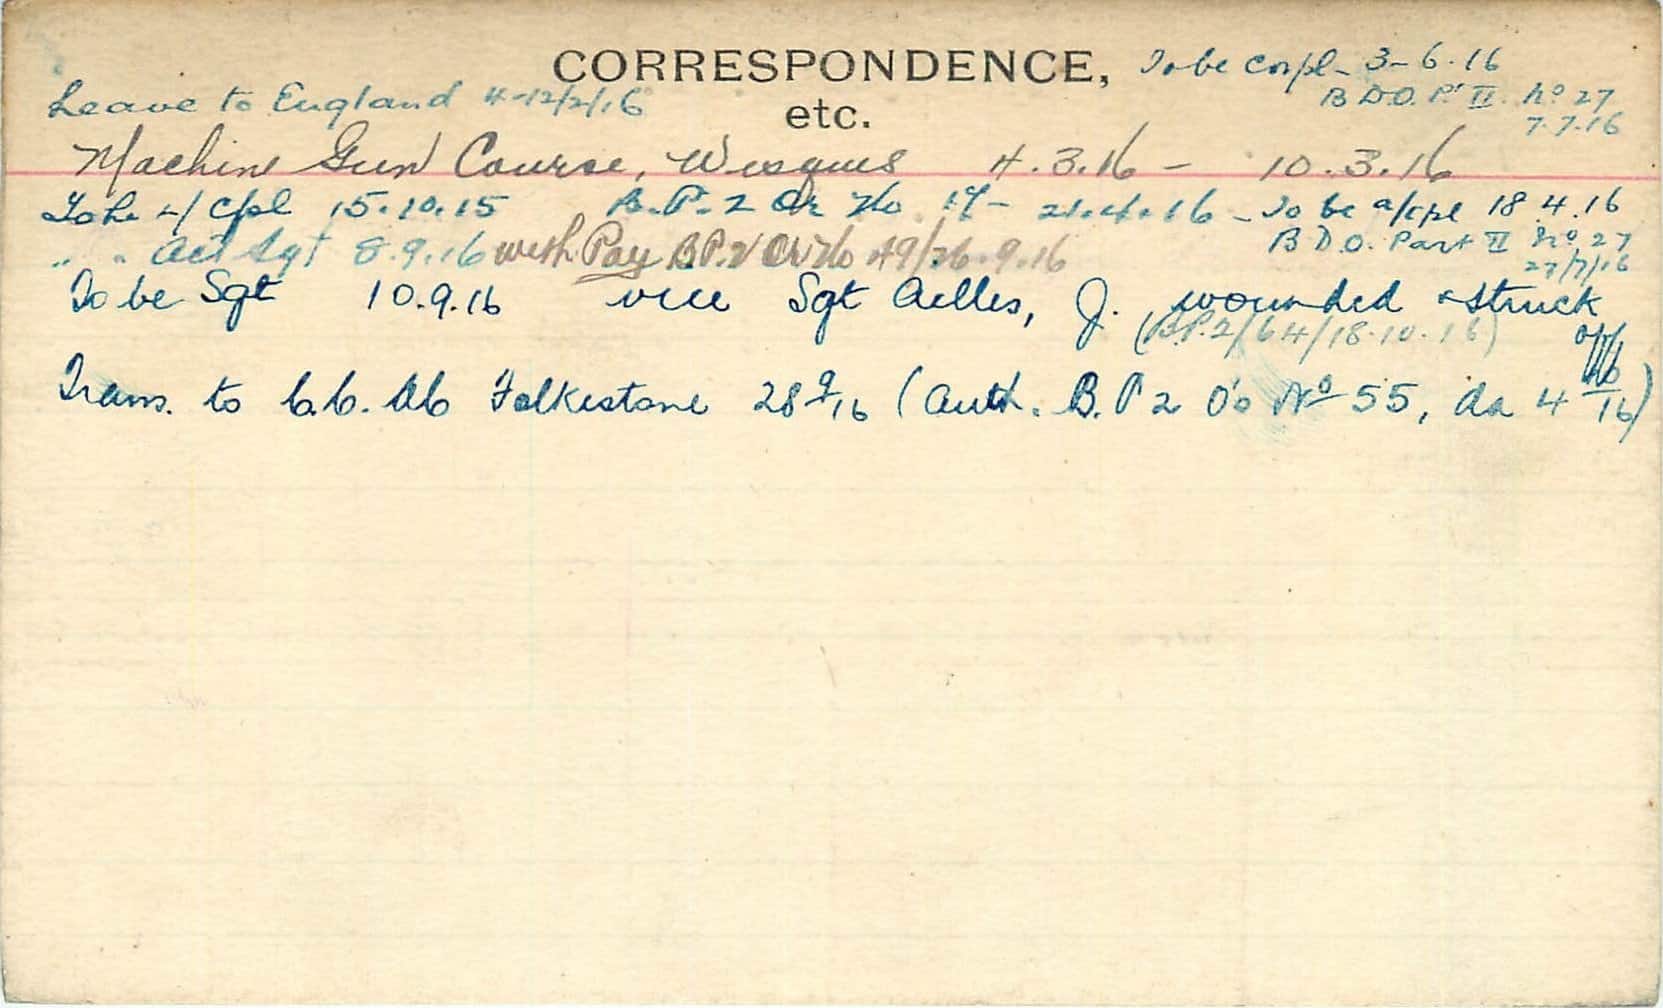 CORRESPONDENCE,
etc.
To be Corpl - 3-6-16
B D.O. Pt II. No 27
7.7.16
Leave to England 4-12/2/16
Machine Gun Course, Wisques 4.3.16 - 10.3.16
To be L/Cpl 15.10.15 B.P. 2 Or No 17 - 21.4.16 - To be a/cpl 18.4.16
B D.O. Part II No 27
27/7/16
" " Act Sgt 8.9.16 with Pay B.P.2 Or No 49/26.9.16
To be Sgt 10.9.16 vice Sgt Ailles, J. wounded & struck
off
(B.P.2/64/18.10.16)
Trans. to C.C. Ac Folkestone 28 9/16 (Auth. B.P 2 O's No 55, da 4 10/16)